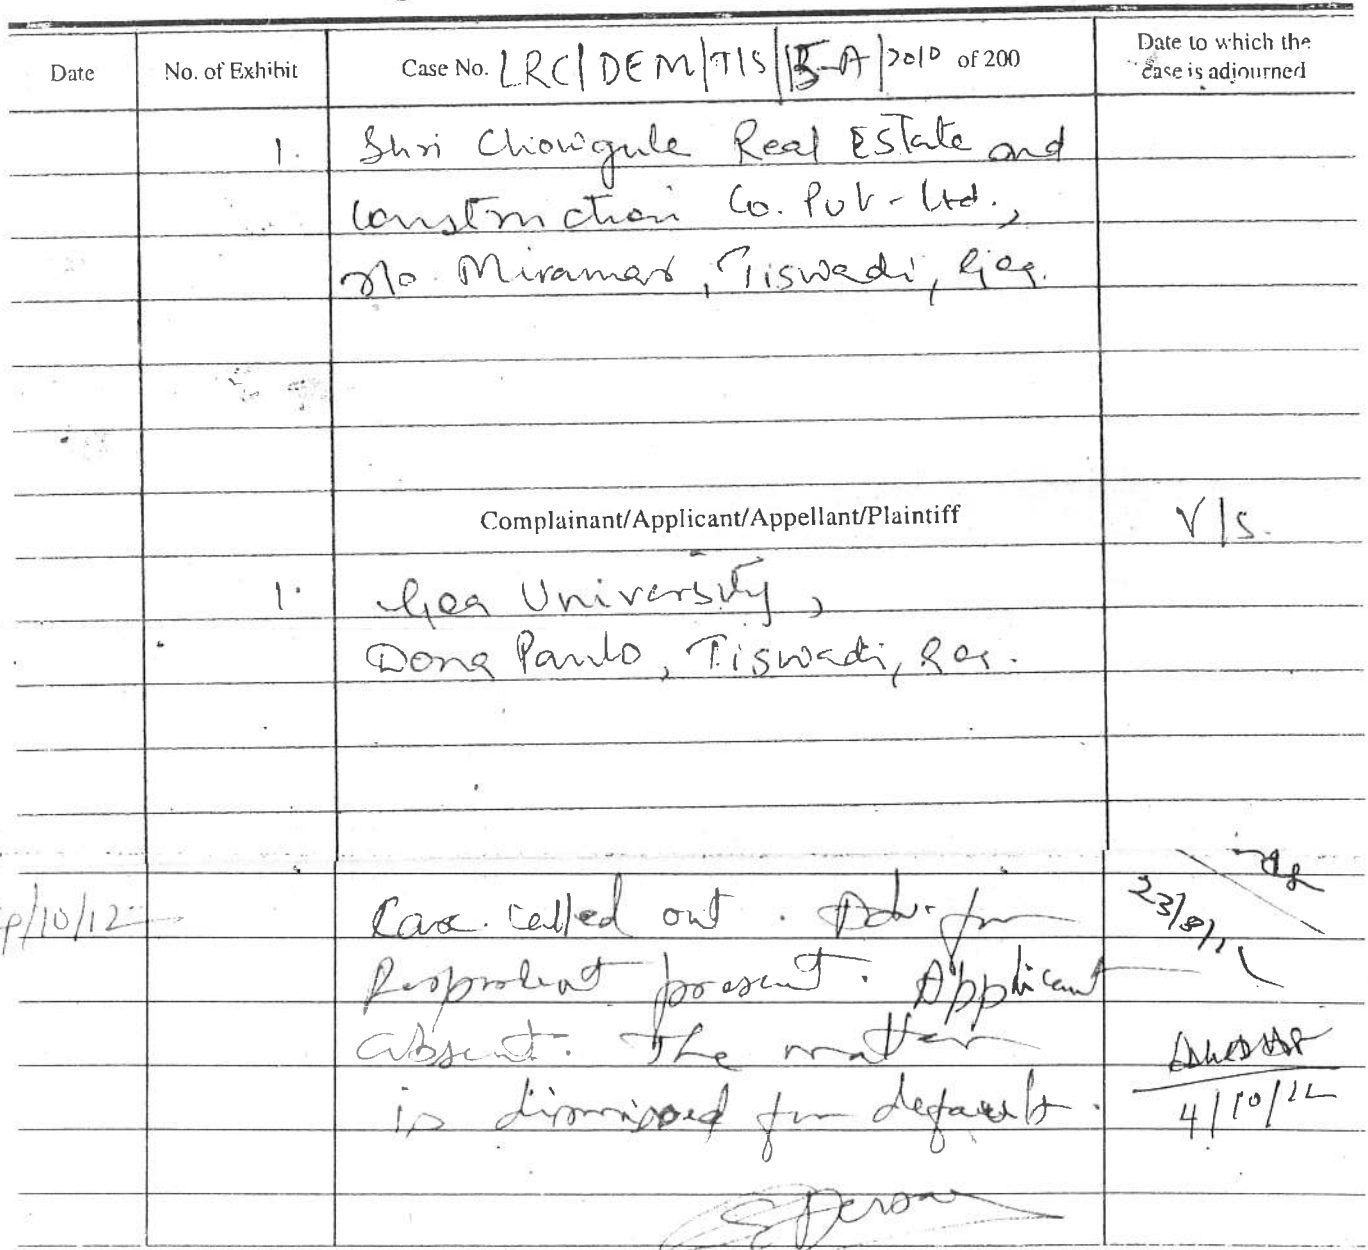 Date No. of Exhibit Case No. LRC/DEM/TIS/15-A/2010 of 200 Date to which the case is adjourned
1. Shri Chowgule Real Estate and
Construction Co. Pvt. Ltd.,
r/o. Miramar, Tiswadi, Goa.
Complainant/Applicant/Appellant/Plaintiff V/s.
1. Goa University,
Dona Paulo, Tiswadi, Goa.
/10/12 Case called out. Adv. for 23/8/11
Respondent present. Applicant
absent. The matter
is dismissed for default. 4/10/12